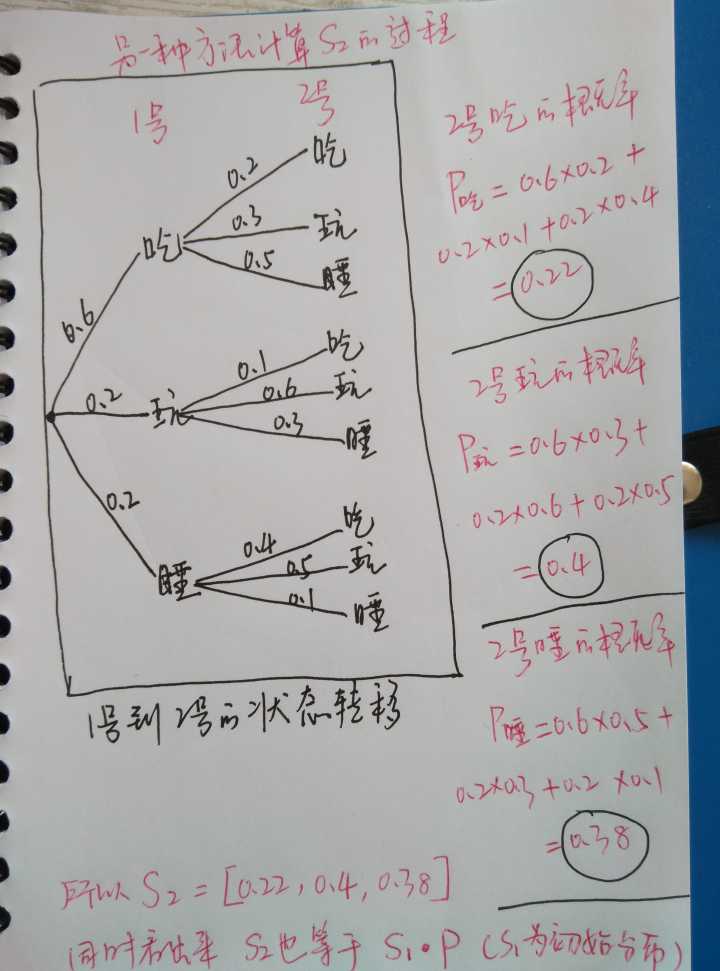 另一种方法计算S₂的过程
1号 2号
0.6 吃 0.2 吃
0.3 玩
0.5 睡
0.2 玩 0.1 吃
0.6 玩
0.3 睡
0.2 睡 0.4 吃
0.5 玩
0.1 睡
1号到2号的状态转移
2号吃的概率
P吃 = 0.6×0.2 +
0.2×0.1 + 0.2×0.4
= 0.22
2号玩的概率
P玩 = 0.6×0.3 +
0.2×0.6 + 0.2×0.5
= 0.4
2号睡的概率
P睡 = 0.6×0.5 +
0.2×0.3 + 0.2×0.1
= 0.38
所以 S₂ = [0.22, 0.4, 0.38]
同时看出来 S₂也等于 S₁•P (S₁为初始分布)